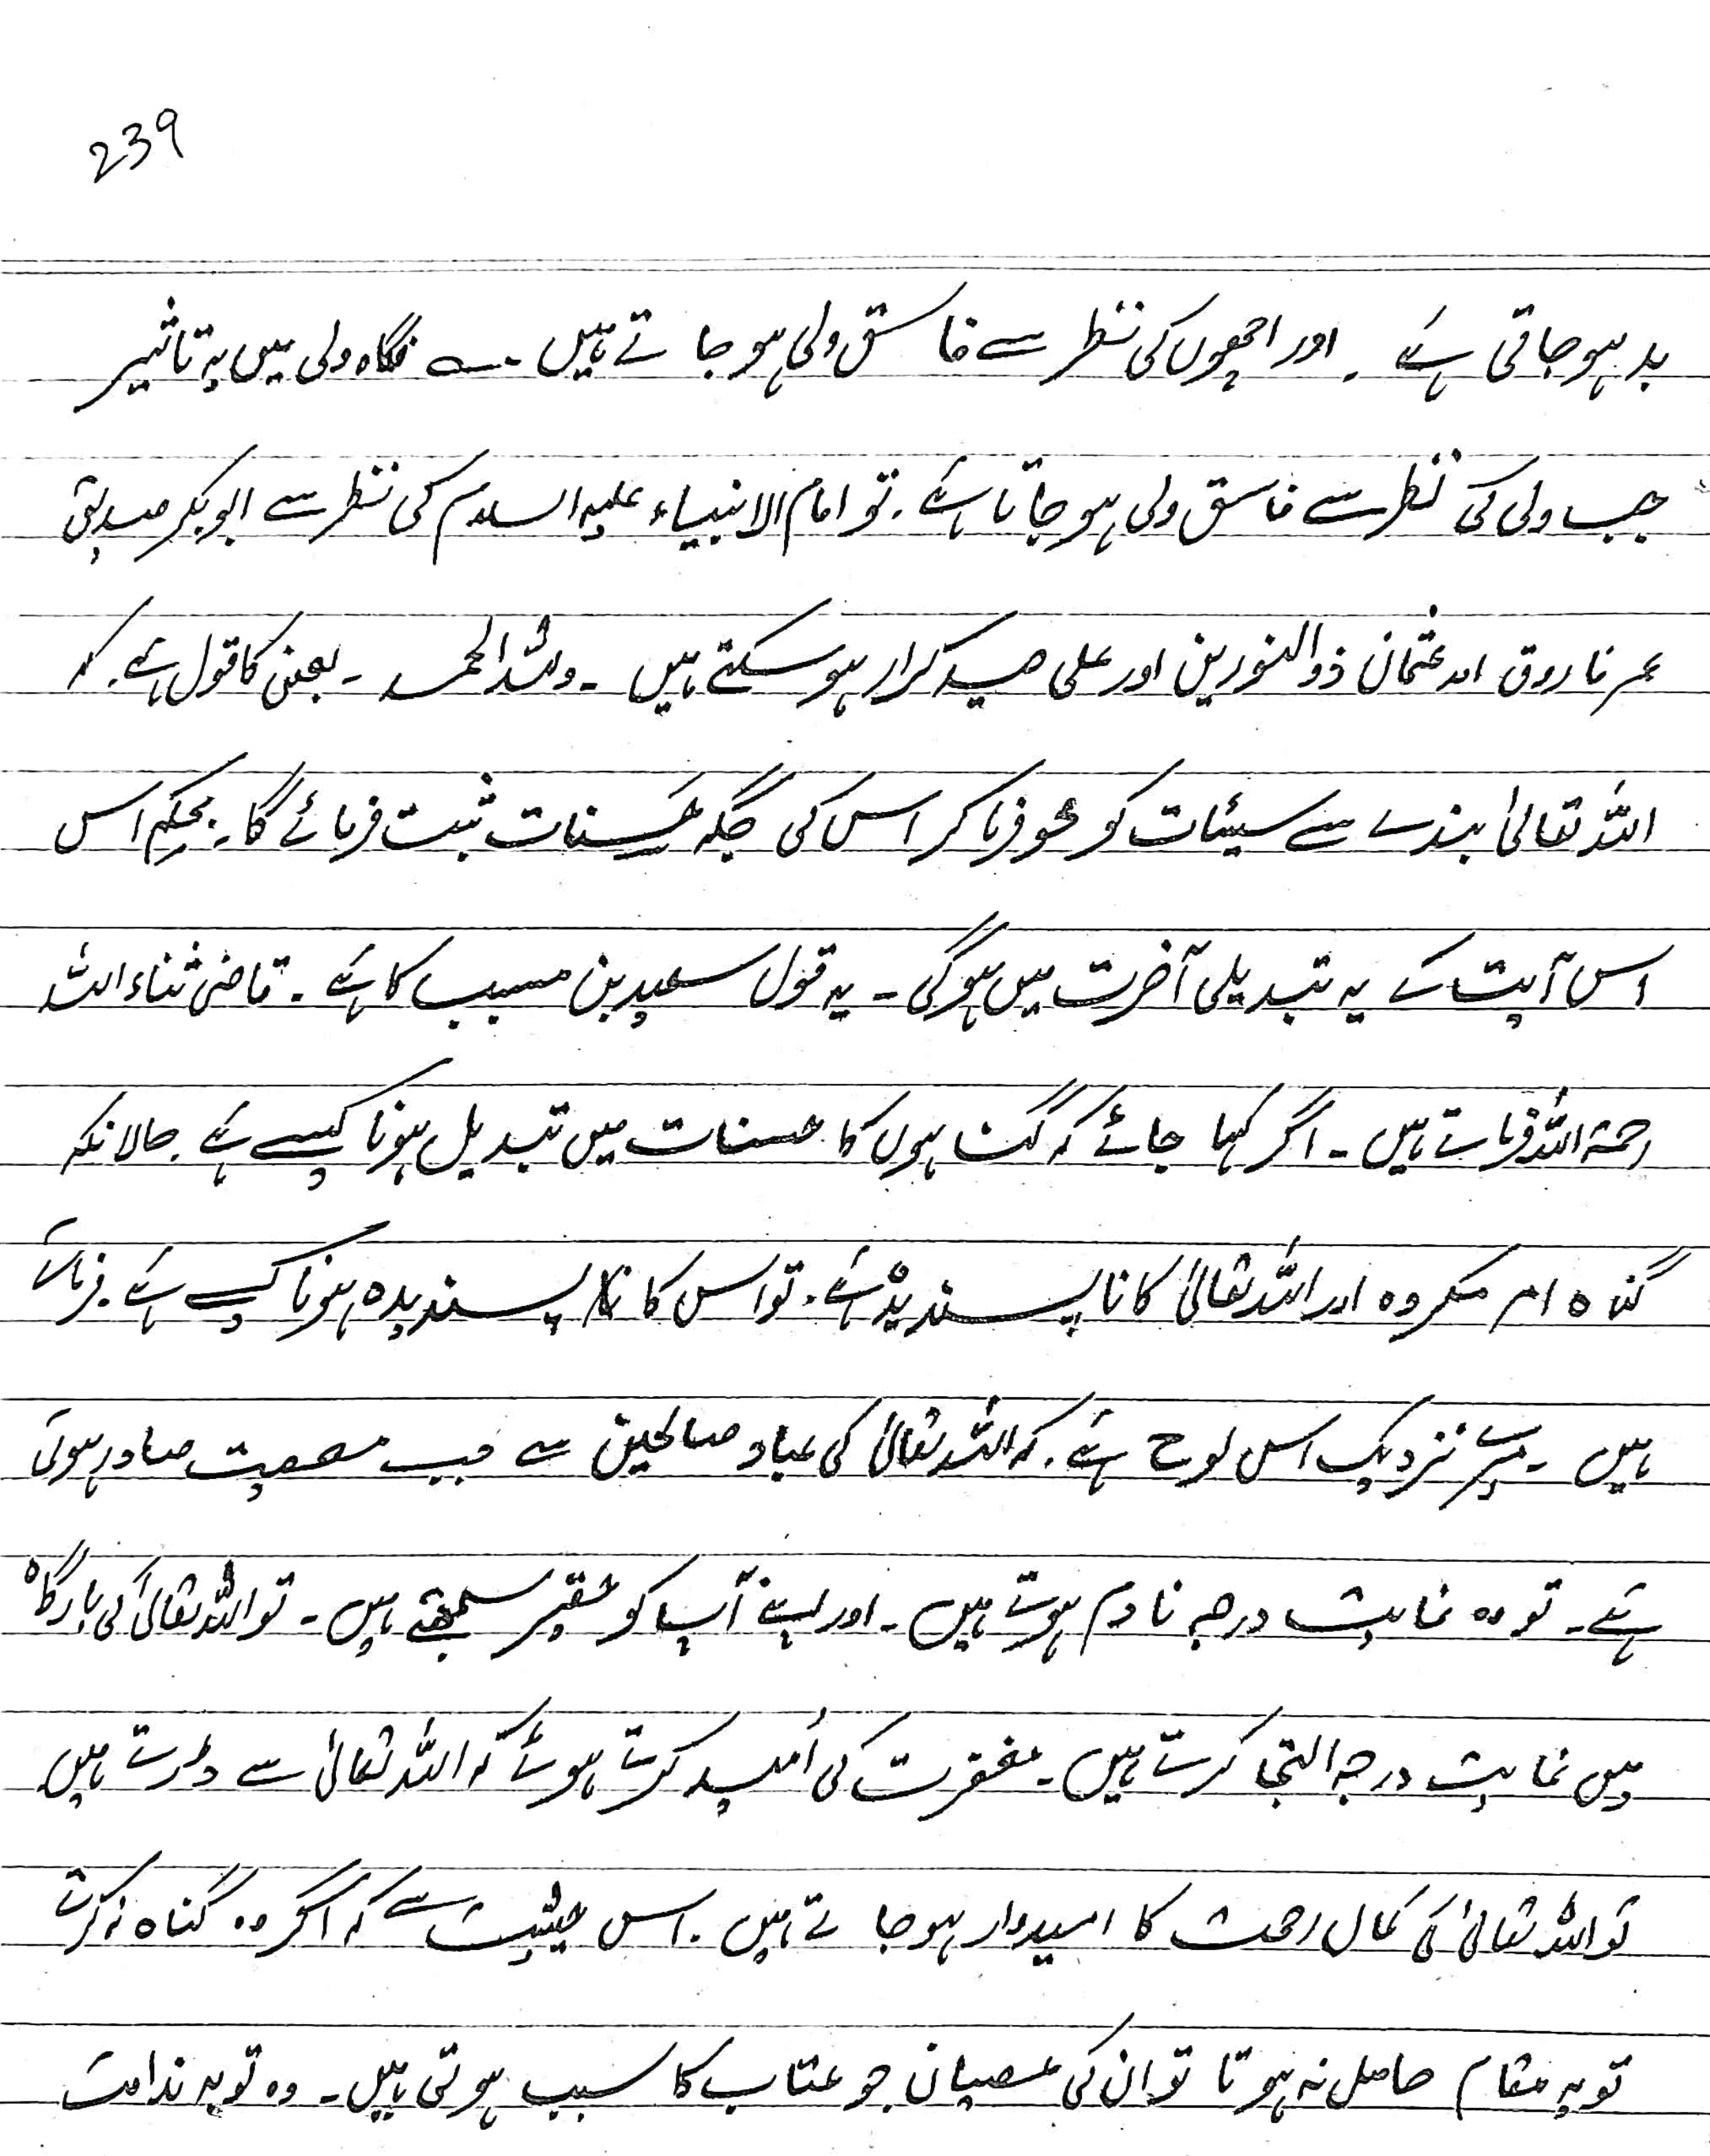 239
بد ہو جاتی ہے ۔ اور اچھوں کی نظر سے فاسق ولی ہو جاتے ہیں ۔ ؎ نگاہ ولی میں یہ تاثیر
جب ولی کی نظر سے فاسق ولی ہو جاتا ہے ۔ تو امام الانبیاء علیہ السلام کی نظر سے ابوبکر صدیق
عمر فاروق اور عثمان ذوالنورین اور علی حیدر کرار ہو سکتے ہیں ۔ وللہ الحمد ۔ بعض کا قول ہے ۔ کہ
اللہ تعالیٰ بندے سے سیئات کو محو فرما کر اس کی جگہ حَسنات ثبت فرمائے گا ۔ بحکمِ اس
اس آیت کے یہ تبدیلی آخرت میں ہوگی ۔ یہ قول سعید بن مسیب کا ہے ۔ قاضی ثناء اللہ
رحمۃ اللہ فرماتے ہیں ۔ اگر کہا جائے کہ گناہوں کا حسنات میں تبدیل ہونا کیسے ہے ۔ حالانکہ
گناہ امر مکروہ اور اللہ تعالیٰ کا ناپسندیدہ ہے ۔ تو اس کا پسندیدہ ہونا کیسے ہے ۔ فرماتے
ہیں ۔ میرے نزدیک اس طرح ہے ۔ کہ اللہ تعالیٰ کی عباد صالحین سے جب معصیت صادر ہوتی
ہے ۔ تو وہ نہایت درجہ نادم ہوتے ہیں ۔ اور اپنے آپ کو حقیر سمجھتے ہیں ۔ تو اللہ تعالیٰ کی بارگاہ
میں نہایت درجہ التجا کرتے ہیں ۔ مغفرت کی اُمید کرتے ہوئے کہ اللہ تعالیٰ سے ڈرتے ہیں
تو اللہ تعالیٰ کی کمال رحمت کا امیدوار ہو جاتے ہیں ۔ اس حیثیت سے کہ اگر وہ گناہ نہ کرتے
تو یہ مقام حاصل نہ ہوتا تو ان کی عصیان جو عتاب کا سبب ہوتی ہیں ۔ وہ توبہ ندامت